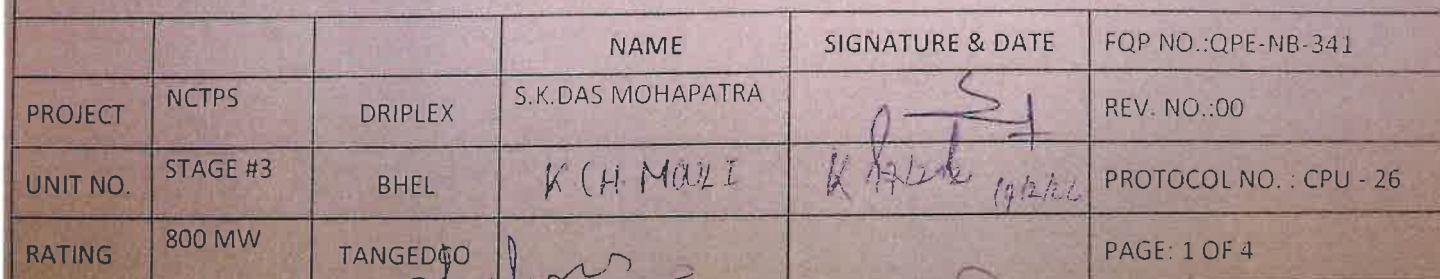 NAME SIGNATURE & DATE FQP NO.:QPE-NB-341
PROJECT NCTPS DRIPLEX S.K.DAS MOHAPATRA REV. NO.:00
UNIT NO. STAGE #3 BHEL K CH. MOULI PROTOCOL NO. : CPU - 26
RATING 800 MW TANGEDCO PAGE: 1 OF 4